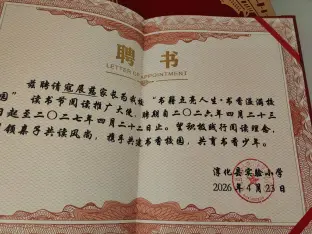 聘 书
LETTER OF APPOINTMENT
兹聘请寇展蔻家长为我校 "书籍点亮人生·书香溢满校
园" 读书节阅读推广大使,聘期自二〇二六年四月二十三
日起至二〇二七年四月二十二日止。望积极践行阅读理念,
引领亲子共读风尚,携手共建书香校园,共育书香少年。
淳化县实验小学
2026年4月23日